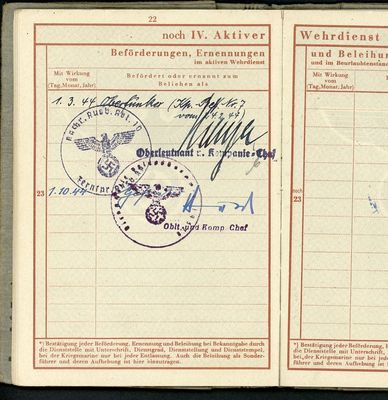 22
noch IV. Aktiver
Wehrdienst
Beförderungen, Ernennungen
im aktiven Wehrdienst
und Beleihu
und im Beurlaubtenstand
Mit Wirkung
vom
(Tag, Monat, Jahr)
Befördert oder ernannt zum
Beliehen als
Mit Wirkung
vom
(Tag, Monat, Jahr)
1. 3. 44 Oberfunker (Kp. Bef. Nr. 7
vom 24.2.44)
Nachr. Ausb. Abt. 10
Oberleutnant u. Kompanie-Chef
23
1.10.44
noch
23
Oblt. und Komp. Chef
*) Bestätigung jeder Beförderung, Ernennung und Beleihung bei Bekanntgabe durch
die Dienststelle mit Unterschrift, Dienstgrad, Dienststellung und Dienststempel,
bei der Kriegsmarine nur bei jeder Entlassung. Auch die Beleihung als Sonder-
führer und deren Aufhebung ist hier einzutragen.
*) Bestätigung jeder Beförderung, E
die Dienststelle mit Unterschrift,
bei der Kriegsmarine nur bei jeder
führer und deren Aufhebung ist